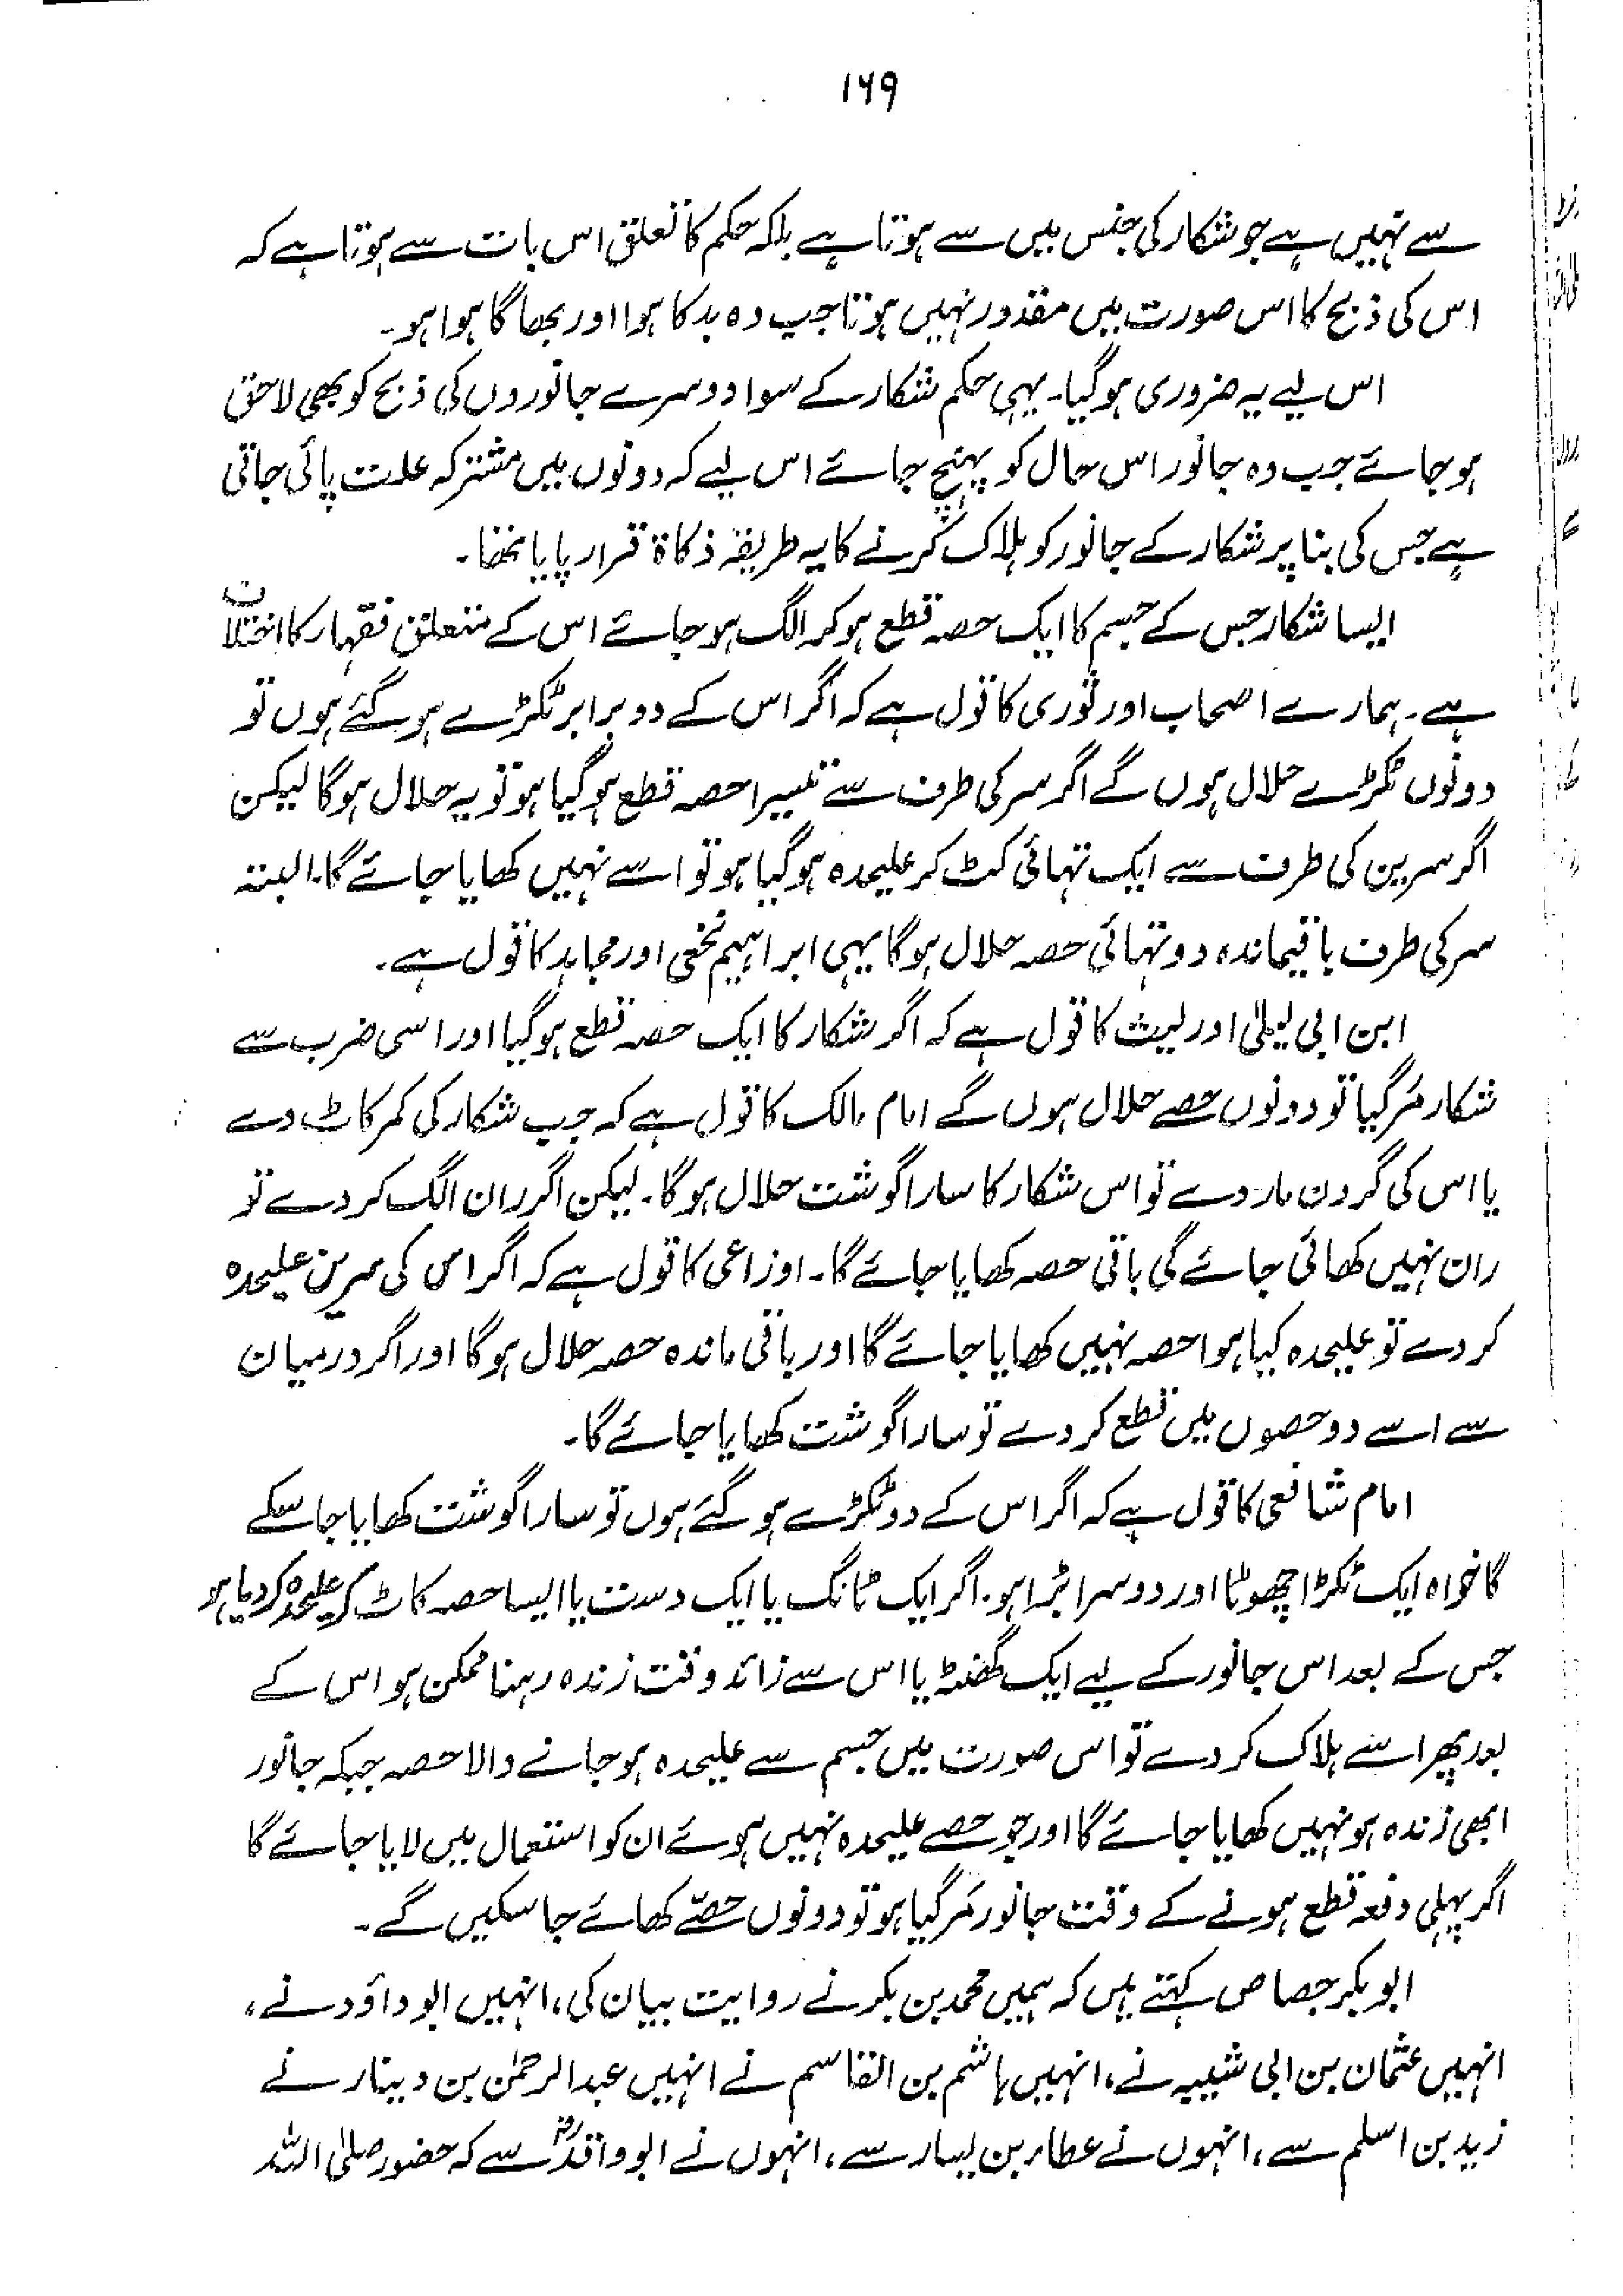 ۱۶۹
سے نہیں ہے جو شکار کی جنس میں سے ہوتا ہے بلکہ حکم کا تعلق اس بات سے ہوتا ہے کہ
اس کی ذبح کا اس صورت میں مقدور نہیں ہوتا جب وہ بدکا ہوا اور بھاگا ہوا ہو۔
اس لیے یہ ضروری ہو گیا۔ یہی حکم شکار کے سوا دوسرے جانوروں کی ذبح کو بھی لاحق
ہو جائے جب وہ جانور اس حال کو پہنچ جائے اس لیے کہ دونوں میں مشترکہ علت پائی جاتی
ہے جس کی بنا پر شکار کے جانور کو ہلاک کرنے کا یہ طریقہ ذکاۃ قرار پایا تھا۔
ایسا شکار جس کے جسم کا ایک حصہ قطع ہو کر الگ ہو جائے اس کے متعلق فقہاء کا اختلاف
ہے۔ ہمارے اصحاب اور ثوری کا قول ہے کہ اگر اس کے دو برابر ٹکڑے ہو گئے ہوں تو
دونوں ٹکڑے حلال ہوں گے اگر سر کی طرف سے تیسرا حصہ قطع ہو گیا ہو تو یہ حلال ہوگا لیکن
اگر سرین کی طرف سے ایک تہائی کٹ کر علیحدہ ہو گیا ہو تو اسے نہیں کھایا جائے گا۔ البتہ
سر کی طرف باقیماندہ دو تہائی حصہ حلال ہوگا یہی ابراہیم نخعی اور مجاہد کا قول ہے۔
ابن ابی لیلیٰ اور لیث کا قول ہے کہ اگر شکار کا ایک حصہ قطع ہو گیا اور اسی ضرب سے
شکار مَر گیا تو دونوں حصے حلال ہوں گے امام مالک کا قول ہے کہ جب شکار کی کمر کاٹ دے
یا اس کی گردن مار دے تو اس شکار کا سارا گوشت حلال ہوگا۔ لیکن اگر ران الگ کر دے تو
ران نہیں کھائی جائے گی باقی حصہ کھایا جائے گا۔ اوزاعی کا قول ہے کہ اگر اس کی سرین علیحدہ
کر دے تو علیحدہ کیا ہوا حصہ نہیں کھایا جائے گا اور باقی ماندہ حصہ حلال ہوگا اور اگر درمیان
سے اسے دو حصوں میں قطع کر دے تو سارا گوشت کھایا جائے گا۔
امام شافعی کا قول ہے کہ اگر اس کے دو ٹکڑے ہو گئے ہوں تو سارا گوشت کھایا جا سکے
گا خواہ ایک ٹکڑا چھوٹا اور دوسرا بڑا ہو۔ اگر ایک ٹانگ یا ایک دست یا ایسا حصہ کاٹ کر علیحدہ کر دیا ہو
جس کے بعد اس جانور کے لیے ایک گھنٹہ یا اس سے زائد وقت زندہ رہنا ممکن ہو اس کے
بعد پھر اسے ہلاک کر دے تو اس صورت میں جسم سے علیحدہ ہو جانے والا حصہ جبکہ جانور
ابھی زندہ ہو نہیں کھایا جائے گا اور جو حصے علیحدہ نہیں ہوئے ان کو استعمال میں لایا جائے گا
اگر پہلی دفعہ قطع ہونے کے وقت جانور مَر گیا ہو تو دونوں حصّے کھائے جا سکیں گے۔
ابو بکر جصاص کہتے ہیں کہ ہمیں محمد بن بکر نے روایت بیان کی، انہیں ابو داؤد نے،
انہیں عثمان بن ابی شیبہ نے، انہیں ہاشم بن القاسم نے انہیں عبدالرحمٰن بن دینار نے
زید بن اسلم سے، انہوں نے عطاء بن یسار سے، انہوں نے ابو واقدؓ سے کہ حضور صلی اللہ